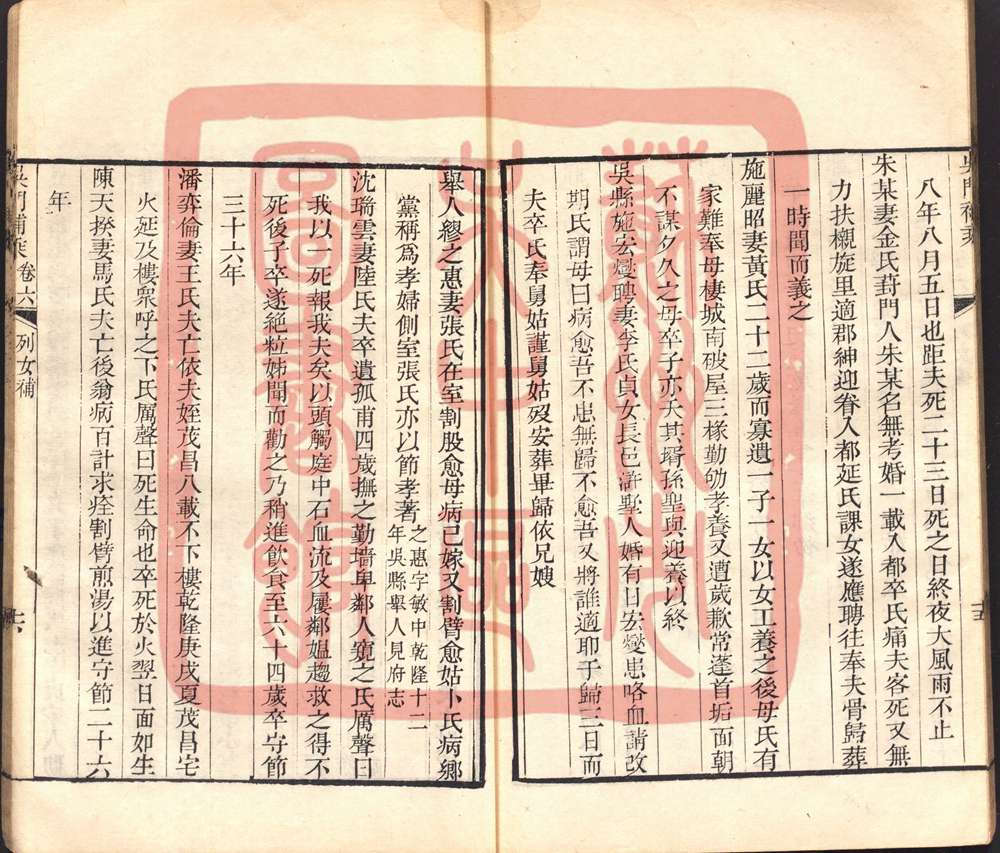 吳門補乘
八年八月五日也距夫死二十三日死之日終夜大風雨不止
朱某妻金氏葑門人朱某名無考婚一載入都卒氏痛夫客死又無
力扶櫬旋里適郡紳迎眷入都延氏課女遂應聘往奉夫骨歸葬
一時聞而義之
施麗昭妻黃氏二十二歲而寡遺一子一女以女工養之後母氏有
家難奉母棲城南破屋三椽勤劬孝養又遭歲歉常蓬首垢面朝
不謀夕久之母卒子亦夭其壻孫聖與迎養以終
吳縣施宏燮聘妻李氏貞女長邑滸墅人婚有日宏燮患咯血請改
期氏謂母曰病愈吾不患無歸不愈吾又將誰適耶于歸三日而
夫卒氏奉舅姑謹舅姑歿安葬畢歸依兄嫂
十五
舉人繆之惠妻張氏在室割股愈母病已嫁又割臂愈姑卜氏病鄉
黨稱爲孝婦側室張氏亦以節孝著之惠字敏中乾隆十二
年吳縣舉人見府志
沈瑞雲妻陸氏夫卒遺孤甫四歲撫之勤墻卑鄰人窺之氏厲聲曰
我以一死報我夫矣以頭觸庭中石血流及屨鄰媼趨救之得不
死後子卒遂絕粒姊聞而勸之乃稍進飲食至六十四歲卒守節
三十六年
潘弈倫妻王氏夫亡依夫姪茂昌八載不下樓乾隆庚戌夏茂昌宅
火延及樓衆呼之下氏厲聲曰死生命也卒死於火翌日面如生
陳天揆妻馬氏夫亡後翁病百計求痊割臂煎湯以進守節二十六
年
吳門補乘 卷六 列女補
十六